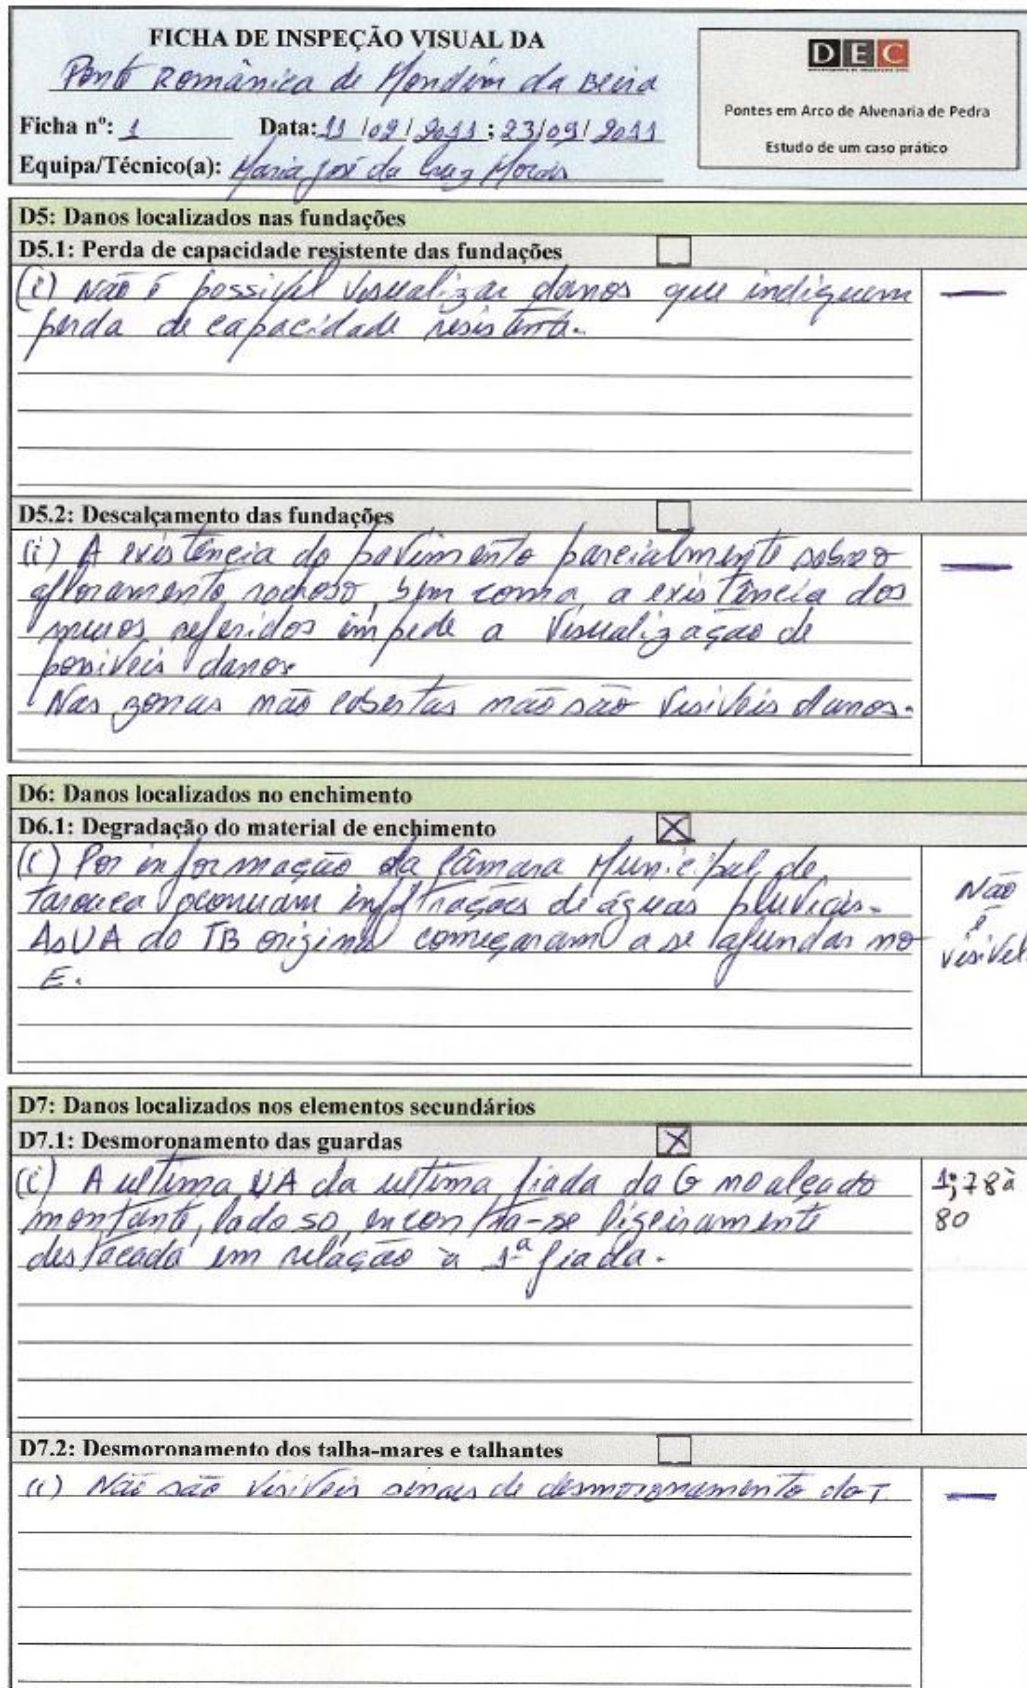 FICHA DE INSPEÇÃO VISUAL DA
Ponte Românica de Mondim da Beira
Ficha nº: 1 Data: 11/02/2011; 23/09/2011
Equipa/Técnico(a): Maria José da Cruz Morais
DEC
Pontes em Arco de Alvenaria de Pedra
Estudo de um caso prático
D5: Danos localizados nas fundações
D5.1: Perda de capacidade resistente das fundações
(i) Não é possivel visualizar danos que indiquem —
perda de capacidade resistente.
D5.2: Descalçamento das fundações
(i) A existência do pavimento parcialmente sobre o —
afloramento rochoso, bem como a existência dos
muros referidos impede a visualização de
possiveis danos.
Nas zonas não cobertas não são visiveis danos.
D6: Danos localizados no enchimento
D6.1: Degradação do material de enchimento ☒
(i) Por informação da Câmara Municipal de
Tarouca ocorriam infiltrações de águas pluviais.
As UA do TB original começaram a se afundar no
E.
Não
é
visivel.
D7: Danos localizados nos elementos secundários
D7.1: Desmoronamento das guardas ☒
(i) A ultima UA da ultima fiada da G no alçado
montante, lado so, encontra-se ligeiramente
destacada em relação à 1ª fiada.
1; 78 à
80
D7.2: Desmoronamento dos talha-mares e talhantes
(i) Não são visiveis sinais de desmoronamento do T. —